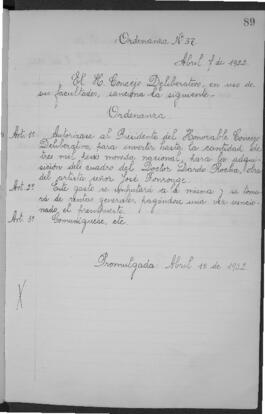 89
Ordenanza Nº 37
Abril 7 de 1922.
El H. Concejo Deliberativo, en uso de
sus facultades, sanciona la siguiente.
Ordenanza
Art. 1º Autorízase al Presidente del Honorable Concejo
Deliberativo, para invertir hasta la cantidad de
tres mil pesos moneda nacional, para la adqui-
sición del cuadro del Doctor Dardo Rocha, obra
del artista señor José
Art. 2º Este gasto se imputará a la misma y se toma
rá de rentas generales, pagándose una vez sancio-
nado el presupuesto.
Art. 3º Comuníquese, etc.
Promulgada: Abril 18 de 1922